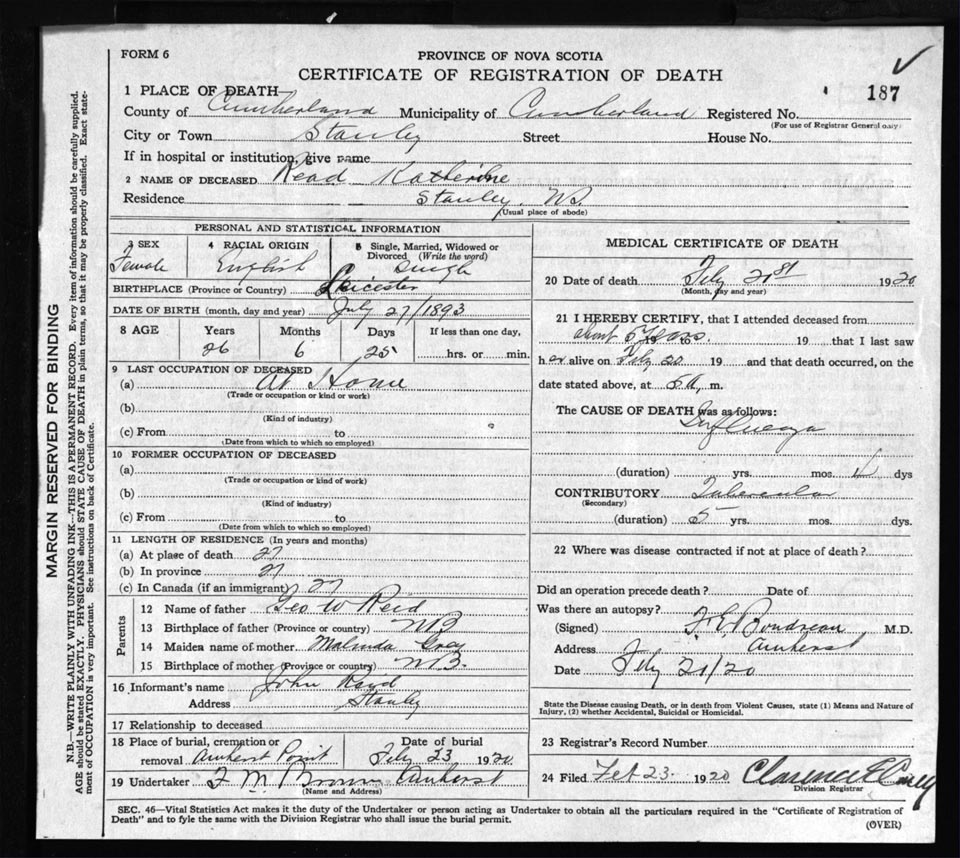 FORM 6
PROVINCE OF NOVA SCOTIA
CERTIFICATE OF REGISTRATION OF DEATH
187
1 PLACE OF DEATH
County of Cumberland Municipality of Cumberland Registered No.
(For use of Registrar General only)
City or Town Stanley Street House No.
If in hospital or institution, give name
2 NAME OF DECEASED Read Katherine
Residence Stanley, NS.
(Usual place of abode)
PERSONAL AND STATISTICAL INFORMATION
3 SEX Female
4 RACIAL ORIGIN English
5 Single, Married, Widowed or Divorced (Write the word) Single
BIRTHPLACE (Province or Country) Leicester
DATE OF BIRTH (month, day and year) July 27/1893
8 AGE Years 26 Months 6 Days 25 If less than one day, hrs. or min.
9 LAST OCCUPATION OF DECEASED
(a) At Home
(Trade or occupation or kind or work)
(b)
(Kind of industry)
(c) From to
(Date from which to which so employed)
10 FORMER OCCUPATION OF DECEASED
(a)
(Trade or occupation or kind of work)
(b)
(Kind of industry)
(c) From to
(Date from which to which so employed)
11 LENGTH OF RESIDENCE (In years and months)
(a) At place of death 27
(b) In province 27
(c) In Canada (if an immigrant) 27
Parents
12 Name of father Geo W Reid
13 Birthplace of father (Province or country) NB
14 Maiden name of mother Malinda Gray
15 Birthplace of mother (Province or country) NB.
16 Informant's name John Read
Address Stanley
17 Relationship to deceased
18 Place of burial, cremation or removal Amherst Point Date of burial Feby 23 1920
19 Undertaker F M Brown Amherst
(Name and Address)
MEDICAL CERTIFICATE OF DEATH
20 Date of death Feby 21st 1920
(Month, day and year)
21 I HEREBY CERTIFY, that I attended deceased from
about 5 Years 19 19 that I last saw
her alive on Feby 20 19 and that death occurred, on the
date stated above, at 5 a, m.
The CAUSE OF DEATH was as follows:
Influenza
(duration) yrs. mos. 4 dys
CONTRIBUTORY Tubercular
(Secondary)
(duration) 5 yrs. mos. dys.
22 Where was disease contracted if not at place of death?
Did an operation precede death? Date of
Was there an autopsy?
(Signed) Boudreau M.D.
Address Amherst
Date Feby 21/20
State the Disease causing Death, or in death from Violent Causes, state (1) Means and Nature of
Injury, (2) whether Accidental, Suicidal or Homicidal.
23 Registrar's Record Number
24 Filed Feb 23. 1920 Clarence
Division Registrar
SEC. 46—Vital Statistics Act makes it the duty of the Undertaker or person acting as Undertaker to obtain all the particulars required in the "Certificate of Registration of
Death" and to fyle the same with the Division Registrar who shall issue the burial permit.
(OVER)
MARGIN RESERVED FOR BINDING
N.B.—WRITE PLAINLY WITH UNFADING INK—THIS IS A PERMANENT RECORD. Every item of information should be carefully supplied.
AGE should be stated EXACTLY. PHYSICIANS should STATE CAUSE OF DEATH in plain terms, so that it may be properly classified. Exact state-
ment of OCCUPATION is very important. See instructions on back of Certificate.